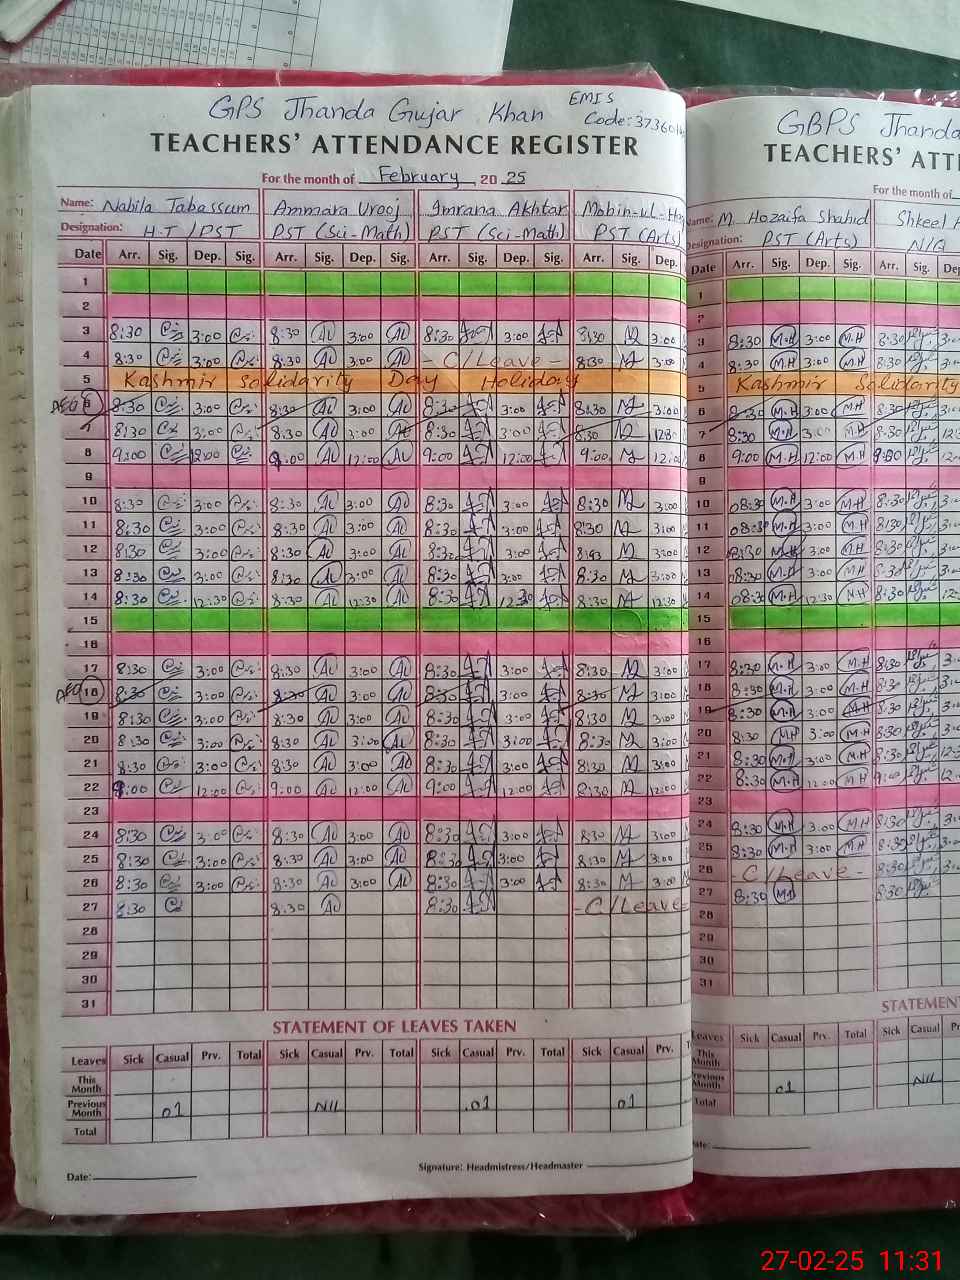 GPS Jhanda Gujar Khan EMIS
Code: 37360
TEACHERS' ATTENDANCE REGISTER
For the month of February 2025
Name: Nabila Tabassum Ammara Urooj Imrana Akhtar Mobin-ul-
Designation: H.T / PST PST (Sci-Math) PST (Sci-Math) PST (Arts)
Date Arr. Sig. Dep. Sig. Arr. Sig. Dep. Sig. Arr. Sig. Dep. Sig. Arr. Sig. Dep.
1
2
3 8:30 3:00 8:30 AU 3:00 AU 8:30 3:00 8:30 3:00
4 8:30 3:00 8:30 AU 3:00 AU - C/Leave - 8:30 3:00
5 Kashmir Solidarity Day Holiday
6 8:30 3:00 8:30 AU 3:00 AU 8:30 3:00 8:30 3:00
7 8:30 3:00 8:30 AU 3:00 AU 8:30 3:00 8:30 12:30
8 9:00 12:00 9:00 AU 12:00 AU 9:00 12:00 9:00 12:00
9
10 8:30 3:00 8:30 AU 3:00 AU 8:30 3:00 8:30 3:00
11 8:30 3:00 8:30 AU 3:00 AU 8:30 3:00 8:30 3:00
12 8:30 3:00 8:30 AU 3:00 AU 8:30 3:00 3:00
13 8:30 3:00 8:30 AU 3:00 AU 8:30 3:00 8:30 3:00
14 8:30 12:30 8:30 AU 12:30 AU 8:30 12:30 8:30 12:30
15
16
17 8:30 3:00 8:30 AU 3:00 AU 8:30 3:00 8:30 3:00
18 8:30 3:00 8:30 AU 3:00 AU 8:30 3:00 8:30 3:00
19 8:30 3:00 8:30 AU 3:00 AU 8:30 3:00 8:30 3:00
20 8:30 3:00 8:30 AU 3:00 AU 8:30 3:00 8:30 3:00
21 8:30 3:00 8:30 AU 3:00 AU 8:30 3:00 8:30 3:00
22 9:00 12:00 9:00 AU 12:00 AU 9:00 12:00 8:30 12:00
23
24 8:30 3:00 8:30 AU 3:00 AU 8:30 3:00 8:30 3:00
25 8:30 3:00 8:30 AU 3:00 AU 8:30 3:00 8:30 3:00
26 8:30 3:00 8:30 AU 3:00 AU 8:30 3:00 8:30 3:00
27 8:30 8:30 AU 8:30 - C/Leave -
28
29
30
31
STATEMENT OF LEAVES TAKEN
Leaves Sick Casual Prv. Total Sick Casual Prv. Total Sick Casual Prv. Total Sick Casual Prv.
This Month
Previous Month 01 NIL 01 01
Total
Date: Signature: Headmistress/Headmaster
GBPS Jhanda
TEACHERS' ATT
For the month of
Name: M. Hozaifa Shahid Shkeel
Designation: PST (Arts) N/Q
Date Arr. Sig. Dep. Sig. Arr. Sig. Dep
1
2
3 8:30 M.H 3:00 M.H 8:30
4 8:30 M.H 3:00 M.H 8:30
5 Kashmir Solidarity
6 8:30 M.H 3:00 M.H 8:30
7 8:30 M.H 3:00 M.H 8:30
8 9:00 M.H 12:00 M.H 9:00
9
10 08:30 M.H 3:00 M.H 8:30
11 08:30 M.H 3:00 M.H 8:30
12 8:30 M.H 3:00 M.H 8:30
13 08:30 M.H 3:00 M.H 8:30
14 08:30 M.H 12:30 M.H 8:30
15
16
17 8:30 M.H 3:00 M.H 8:30
18 8:30 M.H 3:00 M.H 8:30
19 8:30 M.H 3:00 M.H 8:30
20 8:30 M.H 3:00 M.H 8:30
21 8:30 M.H 3:00 M.H 8:30
22 8:30 M.H 12:00 M.H 9:00
23
24 8:30 M.H 3:00 M.H 8:30
25 8:30 M.H 3:00 M.H 8:30
26 - C/Leave - 8:30
27 8:30 M.H 8:30
28
29
30
31
STATEMENT
Leaves Sick Casual Prv. Total Sick Casual Prv.
This Month
Previous Month 01 NIL
Total
Date:
27-02-25 11:31